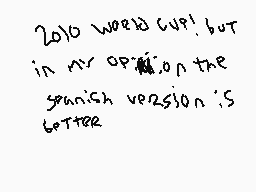 2010 world cup! but
in my opinion the
spanish version is
better